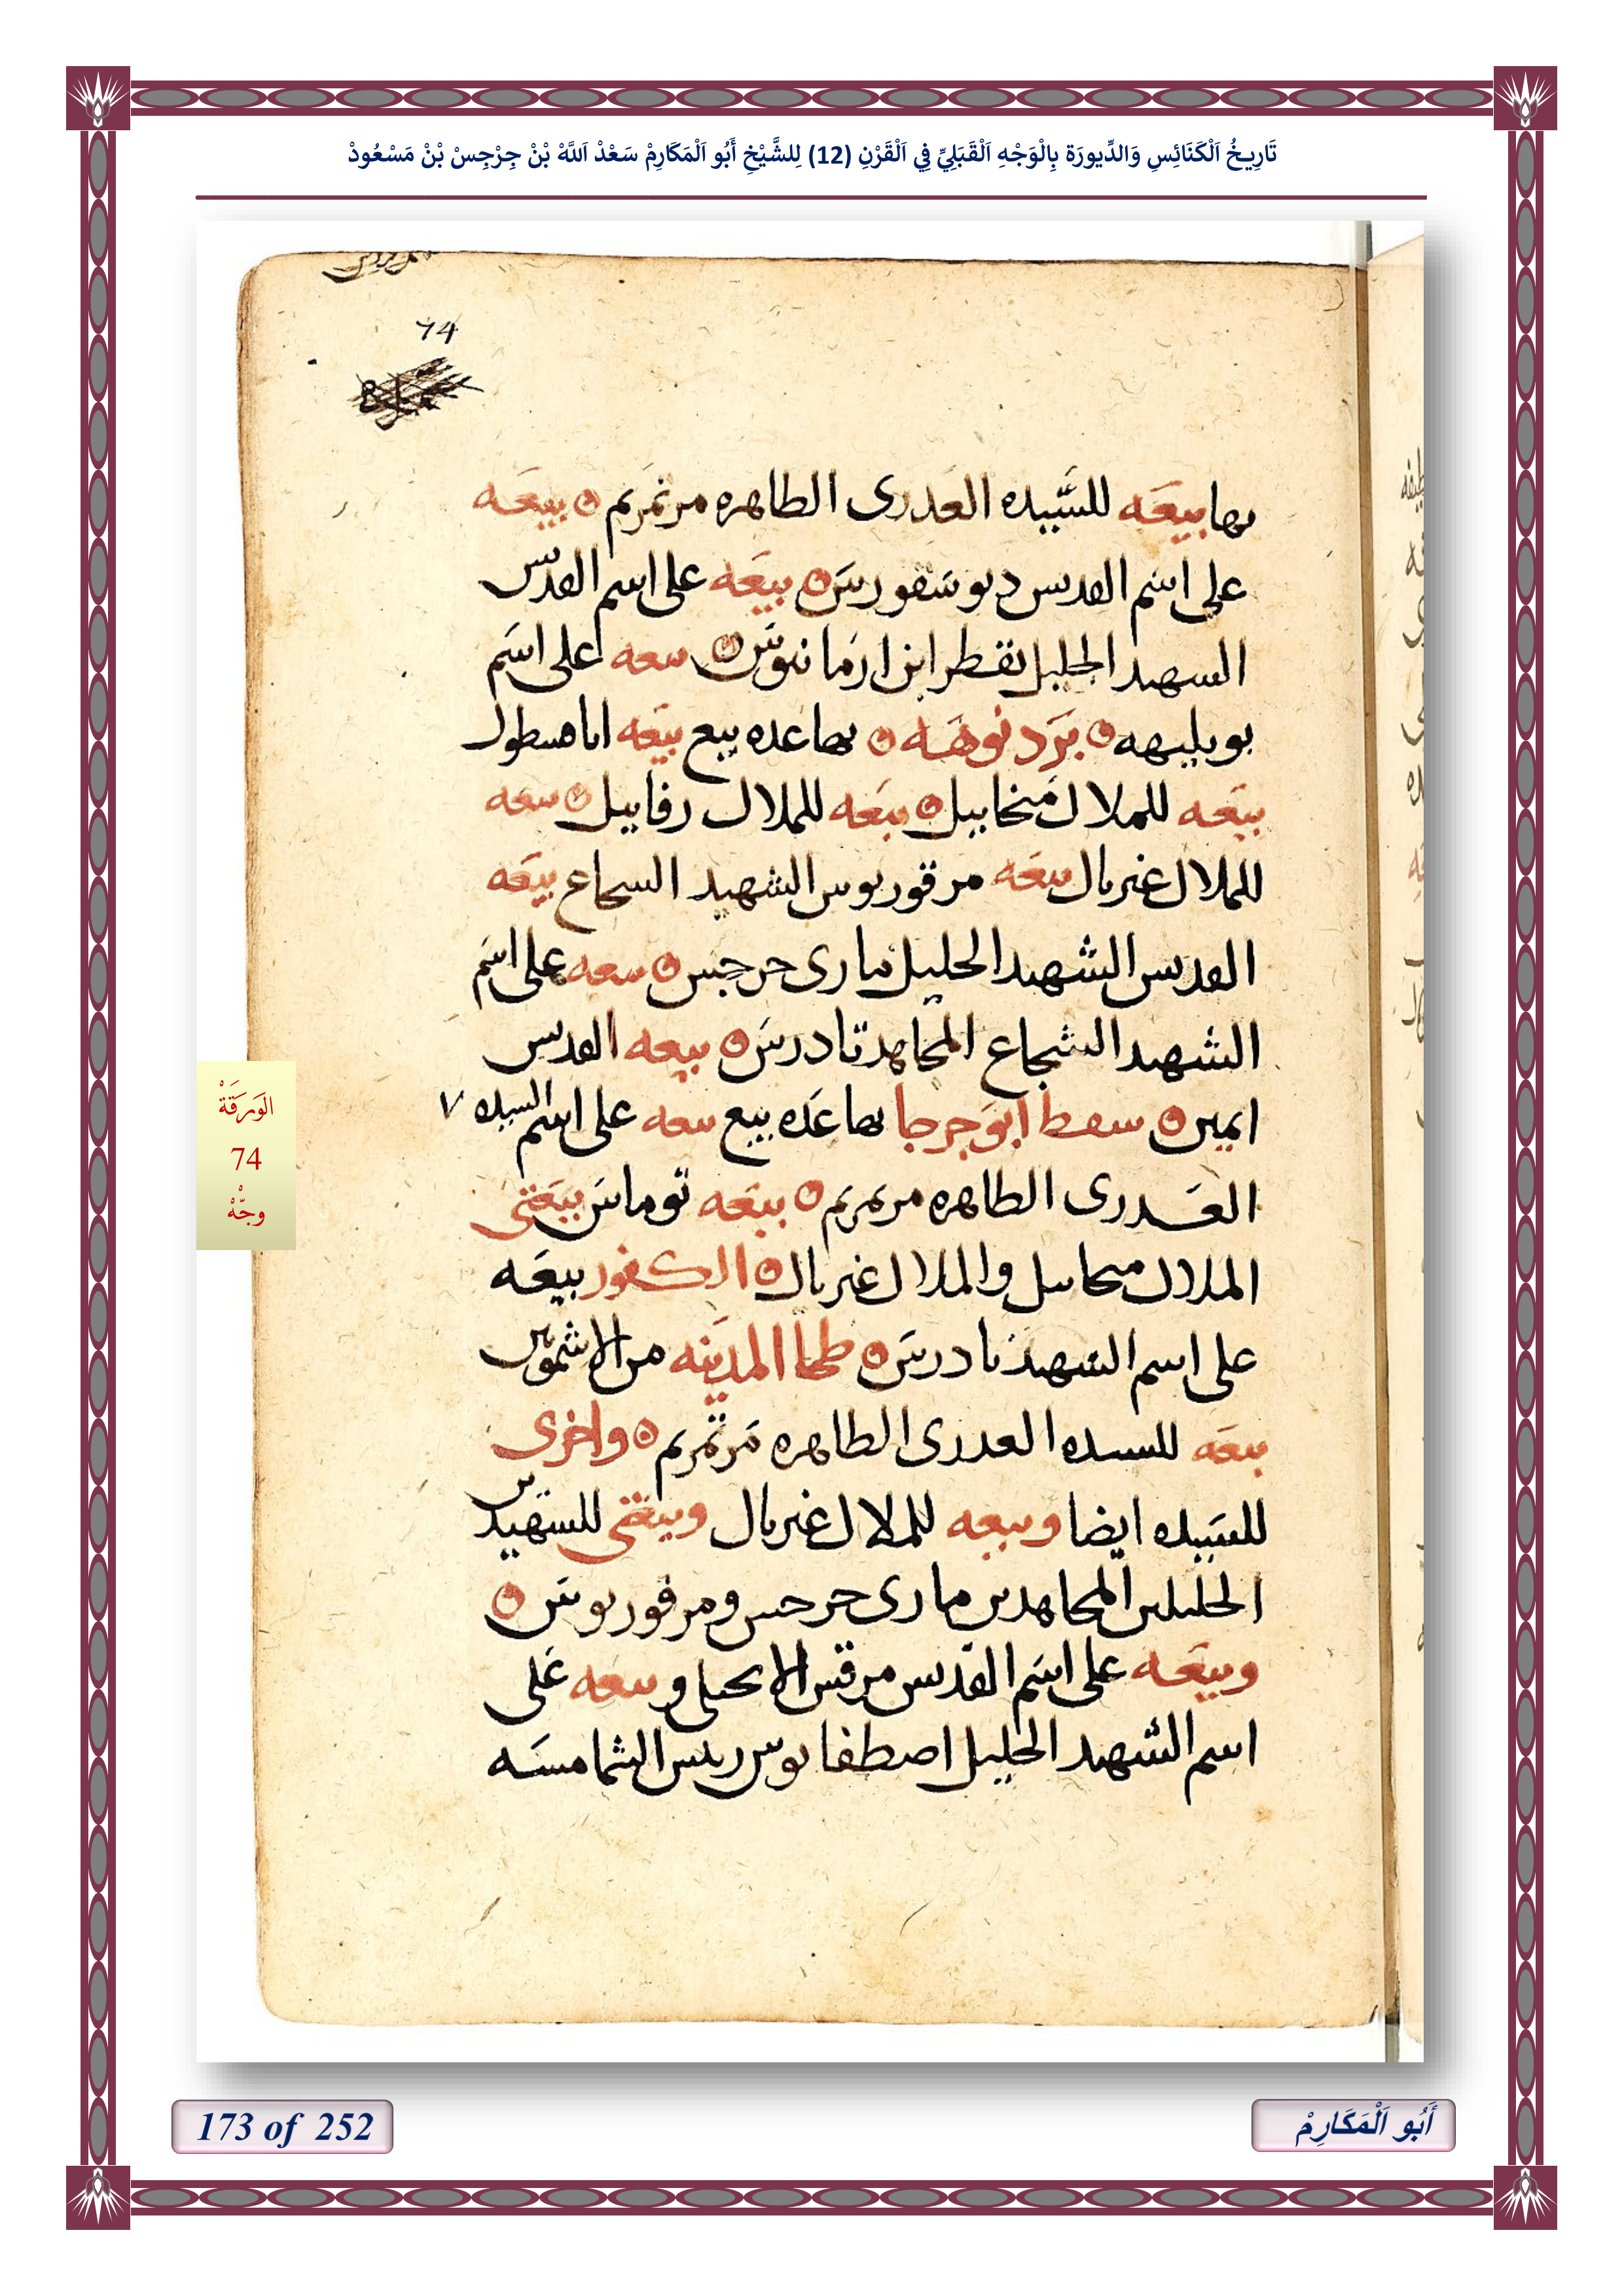 تَارِيخُ اَلْكَنَائِسِ وَالدِّيورَة بِالْوَجْهِ اَلْقَبَلِيِّ فِي اَلْقَرْنِ (12) لِلشَّيْخِ أَبُو اَلْمَكَارِمْ سَعْدْ اَللَّهْ بْنْ جِرْجِسْ بْنْ مَسْعُودْ
74
بها بيعه للسيده العدرى الطاهره مرتمريم بيعه
على اسم القديس ديوسقورس بيعه على اسم القديس
الشهيد الجليل بقطر ابن ارمانيوس بيعه على اسم
بوبليهه برد نوهه بها عده بيع بيعه اباهسطول
بيعه للملاك منخاييل بيعه للملاك رفاييل بيعه
للملاك غبريال بيعه مرقوريوس الشهيد الشجاع بيعه
القديس الشهيد الجليل مارى جرجس بيعه على اسم
الشهيد الشجاع المجاهد تادرس بيعه القديس
ايمين سفط ابو جرجا بها عده بيع بيعه على اسم السيده
العدرى الطاهره مرتمريم بيعه توماس بيعتى
الملاك ميخاييل والملاك غبريال الكفور بيعه
على اسم الشهيد تادرس طحا المدينه من الاشمونين
بيعه للسيده العدرى الطاهره مرتمريم واخرى
للسيده ايضا وبيعه للملاك غبريال وبيعتى للشهيدين
الجليلين المجاهدين مارى جرجس ومرقوريوس
وبيعه على اسم القديس مرقس الانجيلى وبيعه على
اسم الشهيد الجليل اصطفانوس ريس الشمامسه
الوَرَقَةْ
74
وجّهْ
173 of 252
أَبُو اَلْمَكَارِمْ